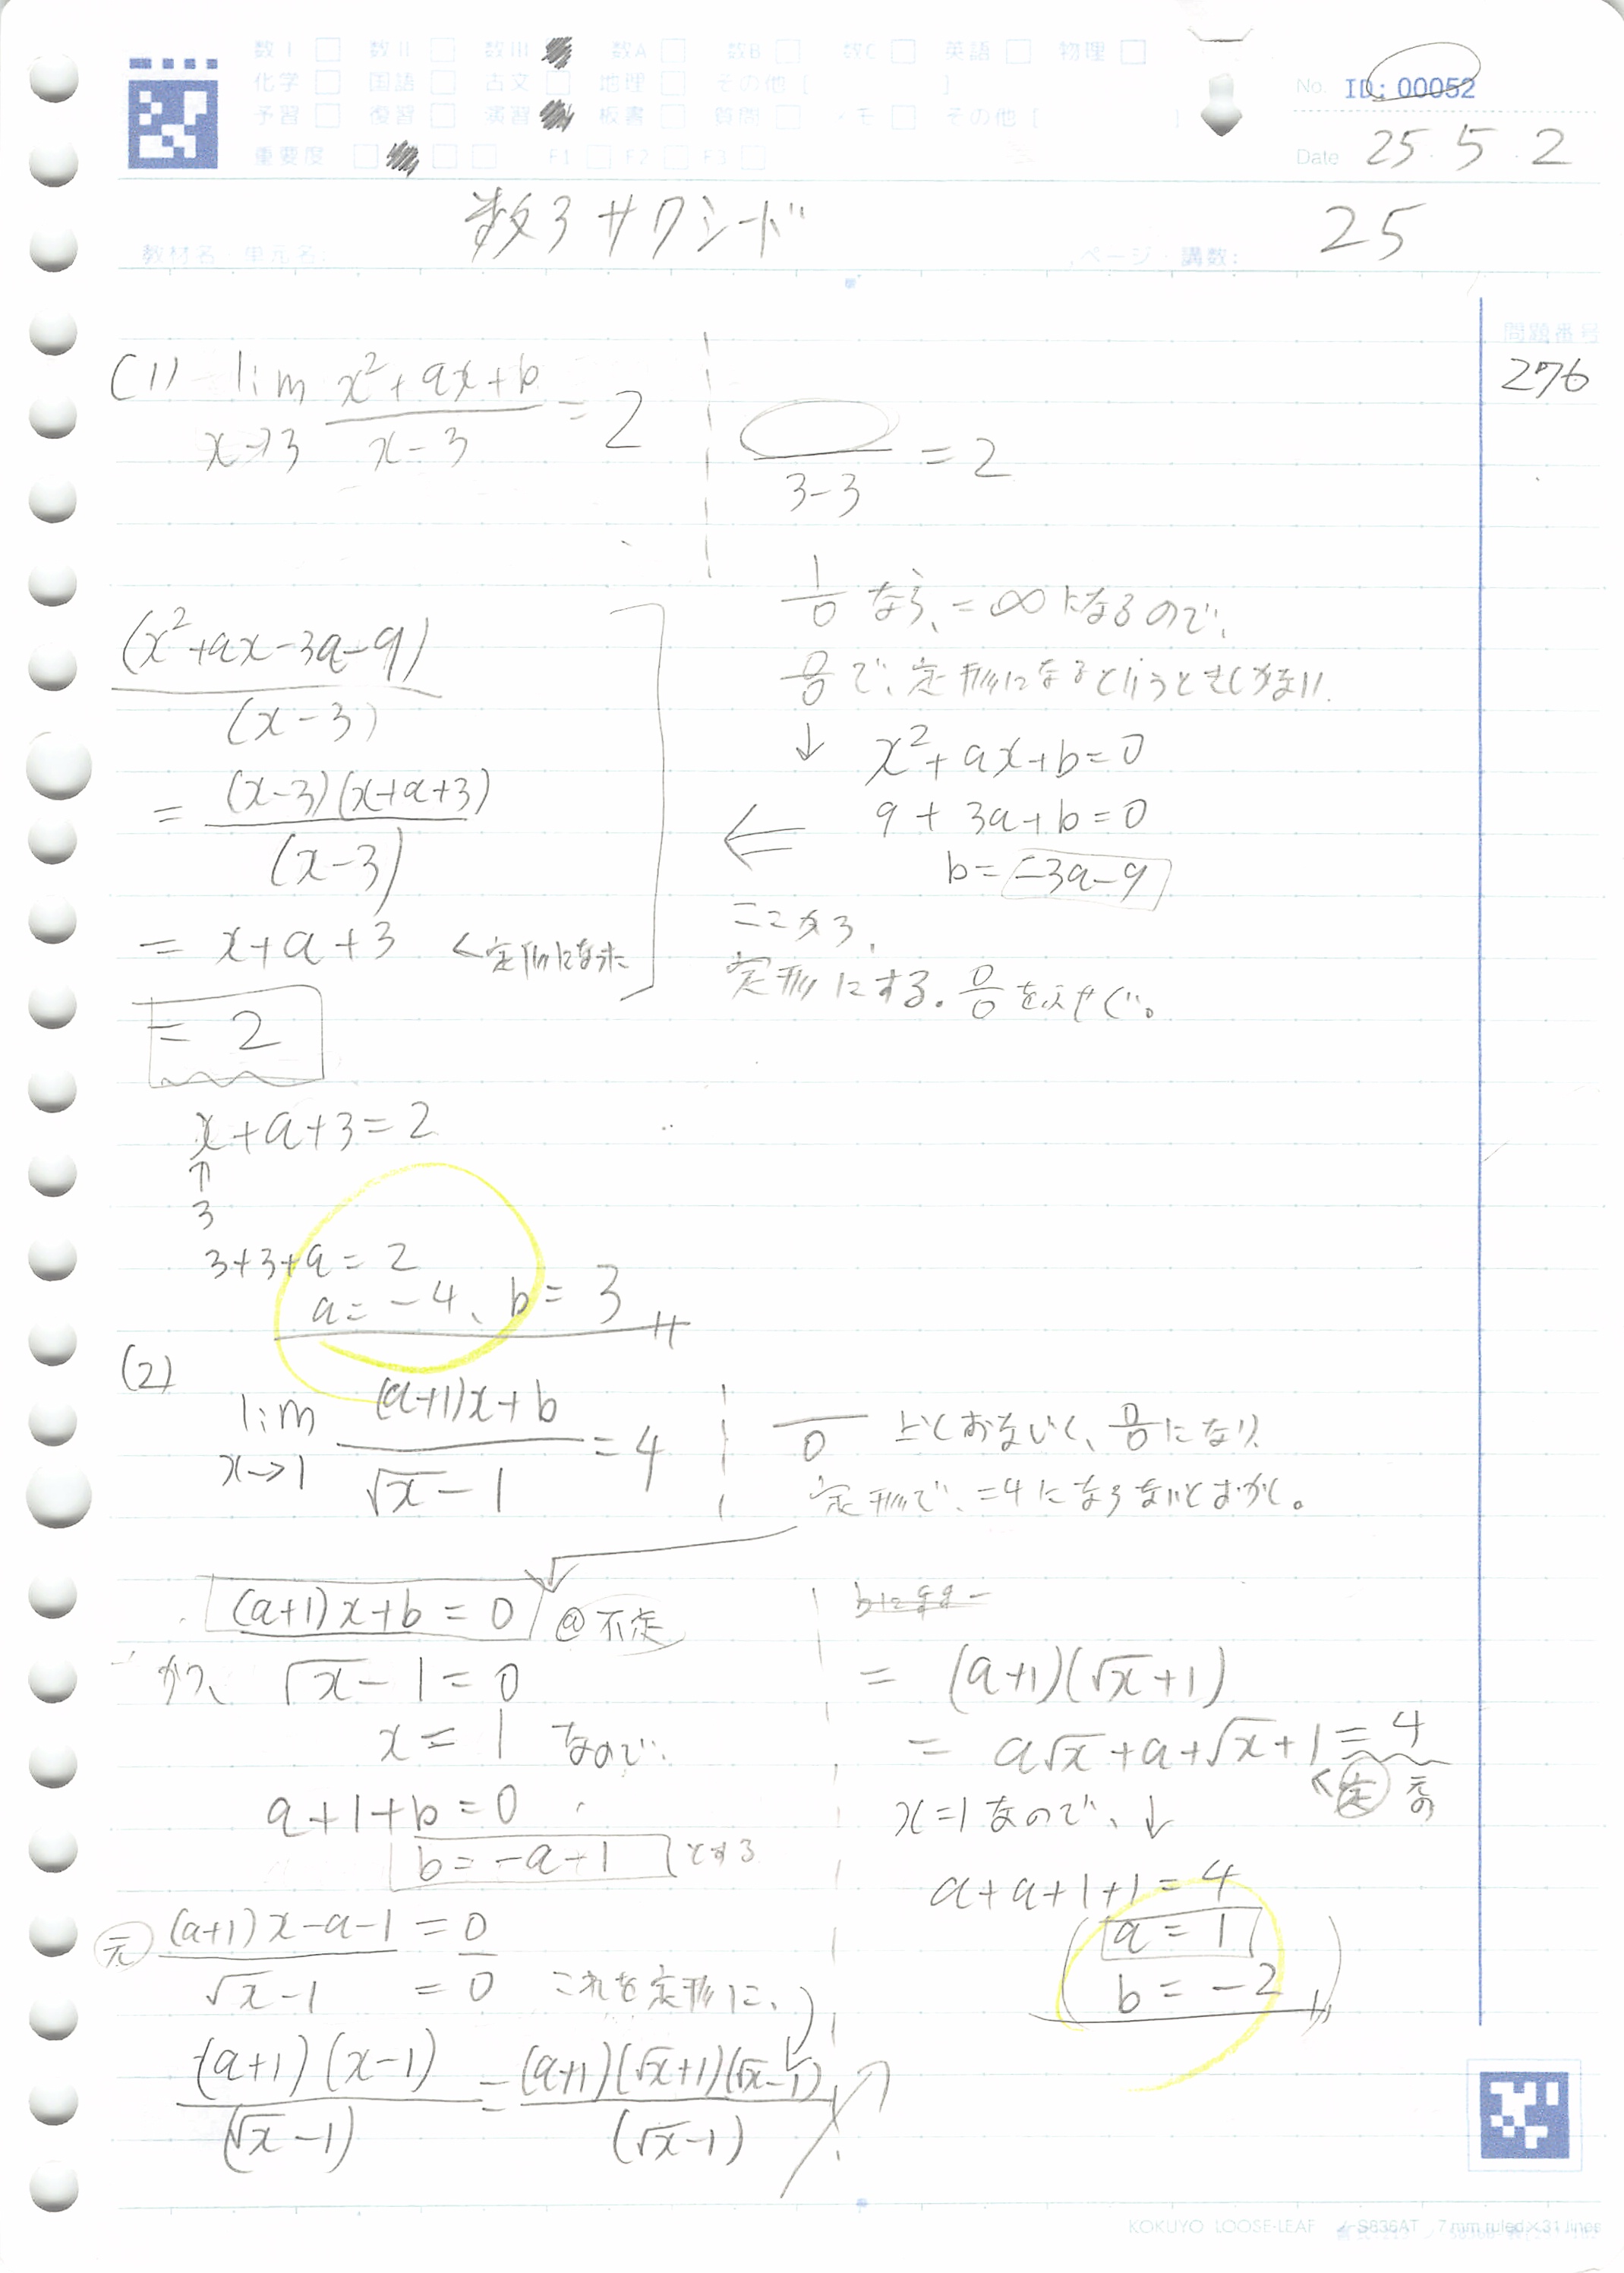 数Ⅰ 数Ⅱ 数Ⅲ 数A 数B 数C 英語 物理
化学 国語 古文 地理 その他 [ ]
予習 復習 演習 板書 質問 メモ その他 [ ]
重要度 F1 F2 F3
No. ID: 00052
Date 25. 5. 2
教材名・単元名: 数3サクシード
ページ・講数: 25
問題番号
276
(1) lim x→3 (x²+ax+b)/(x-3) = 2
/(3-3) = 2
1/0 なら、=∞になるので、
0/0 で、定形になるというときしかない。
↓ x²+ax+b=0
9+3a+b=0
b=-3a-9
ここから、
定形にする。0/0をふせぐ。
(x²+ax-3a-9)/(x-3)
= (x-3)(x+a+3)/(x-3)
= x+a+3 ←定形になった
= 2
x+a+3=2
↑
3
3+3+a=2
a=-4、b=3
(2)
lim x→1 ((a+1)x+b)/(√x-1) = 4
/0 0/0になり、
定形で、=4にならないとおかしい。
(a+1)x+b=0 @不定
かつ、√x-1=0
x=1 なので、
a+1+b=0
b=-a-1 とする
元 ((a+1)x-a-1)/(√x-1) =0/=0 これを定形に、
(a+1)(x-1)/(√x-1) = (a+1)(√x+1)(√x-1)/(√x-1)
= (a+1)(√x+1)
= a√x+a+√x+1=4
←定 元の
x=1なので、↓
a+a+1+1=4
a=1
b=-2
KOKUYO LOOSE-LEAF ノ-S836AT 7 mm ruled×31 lines